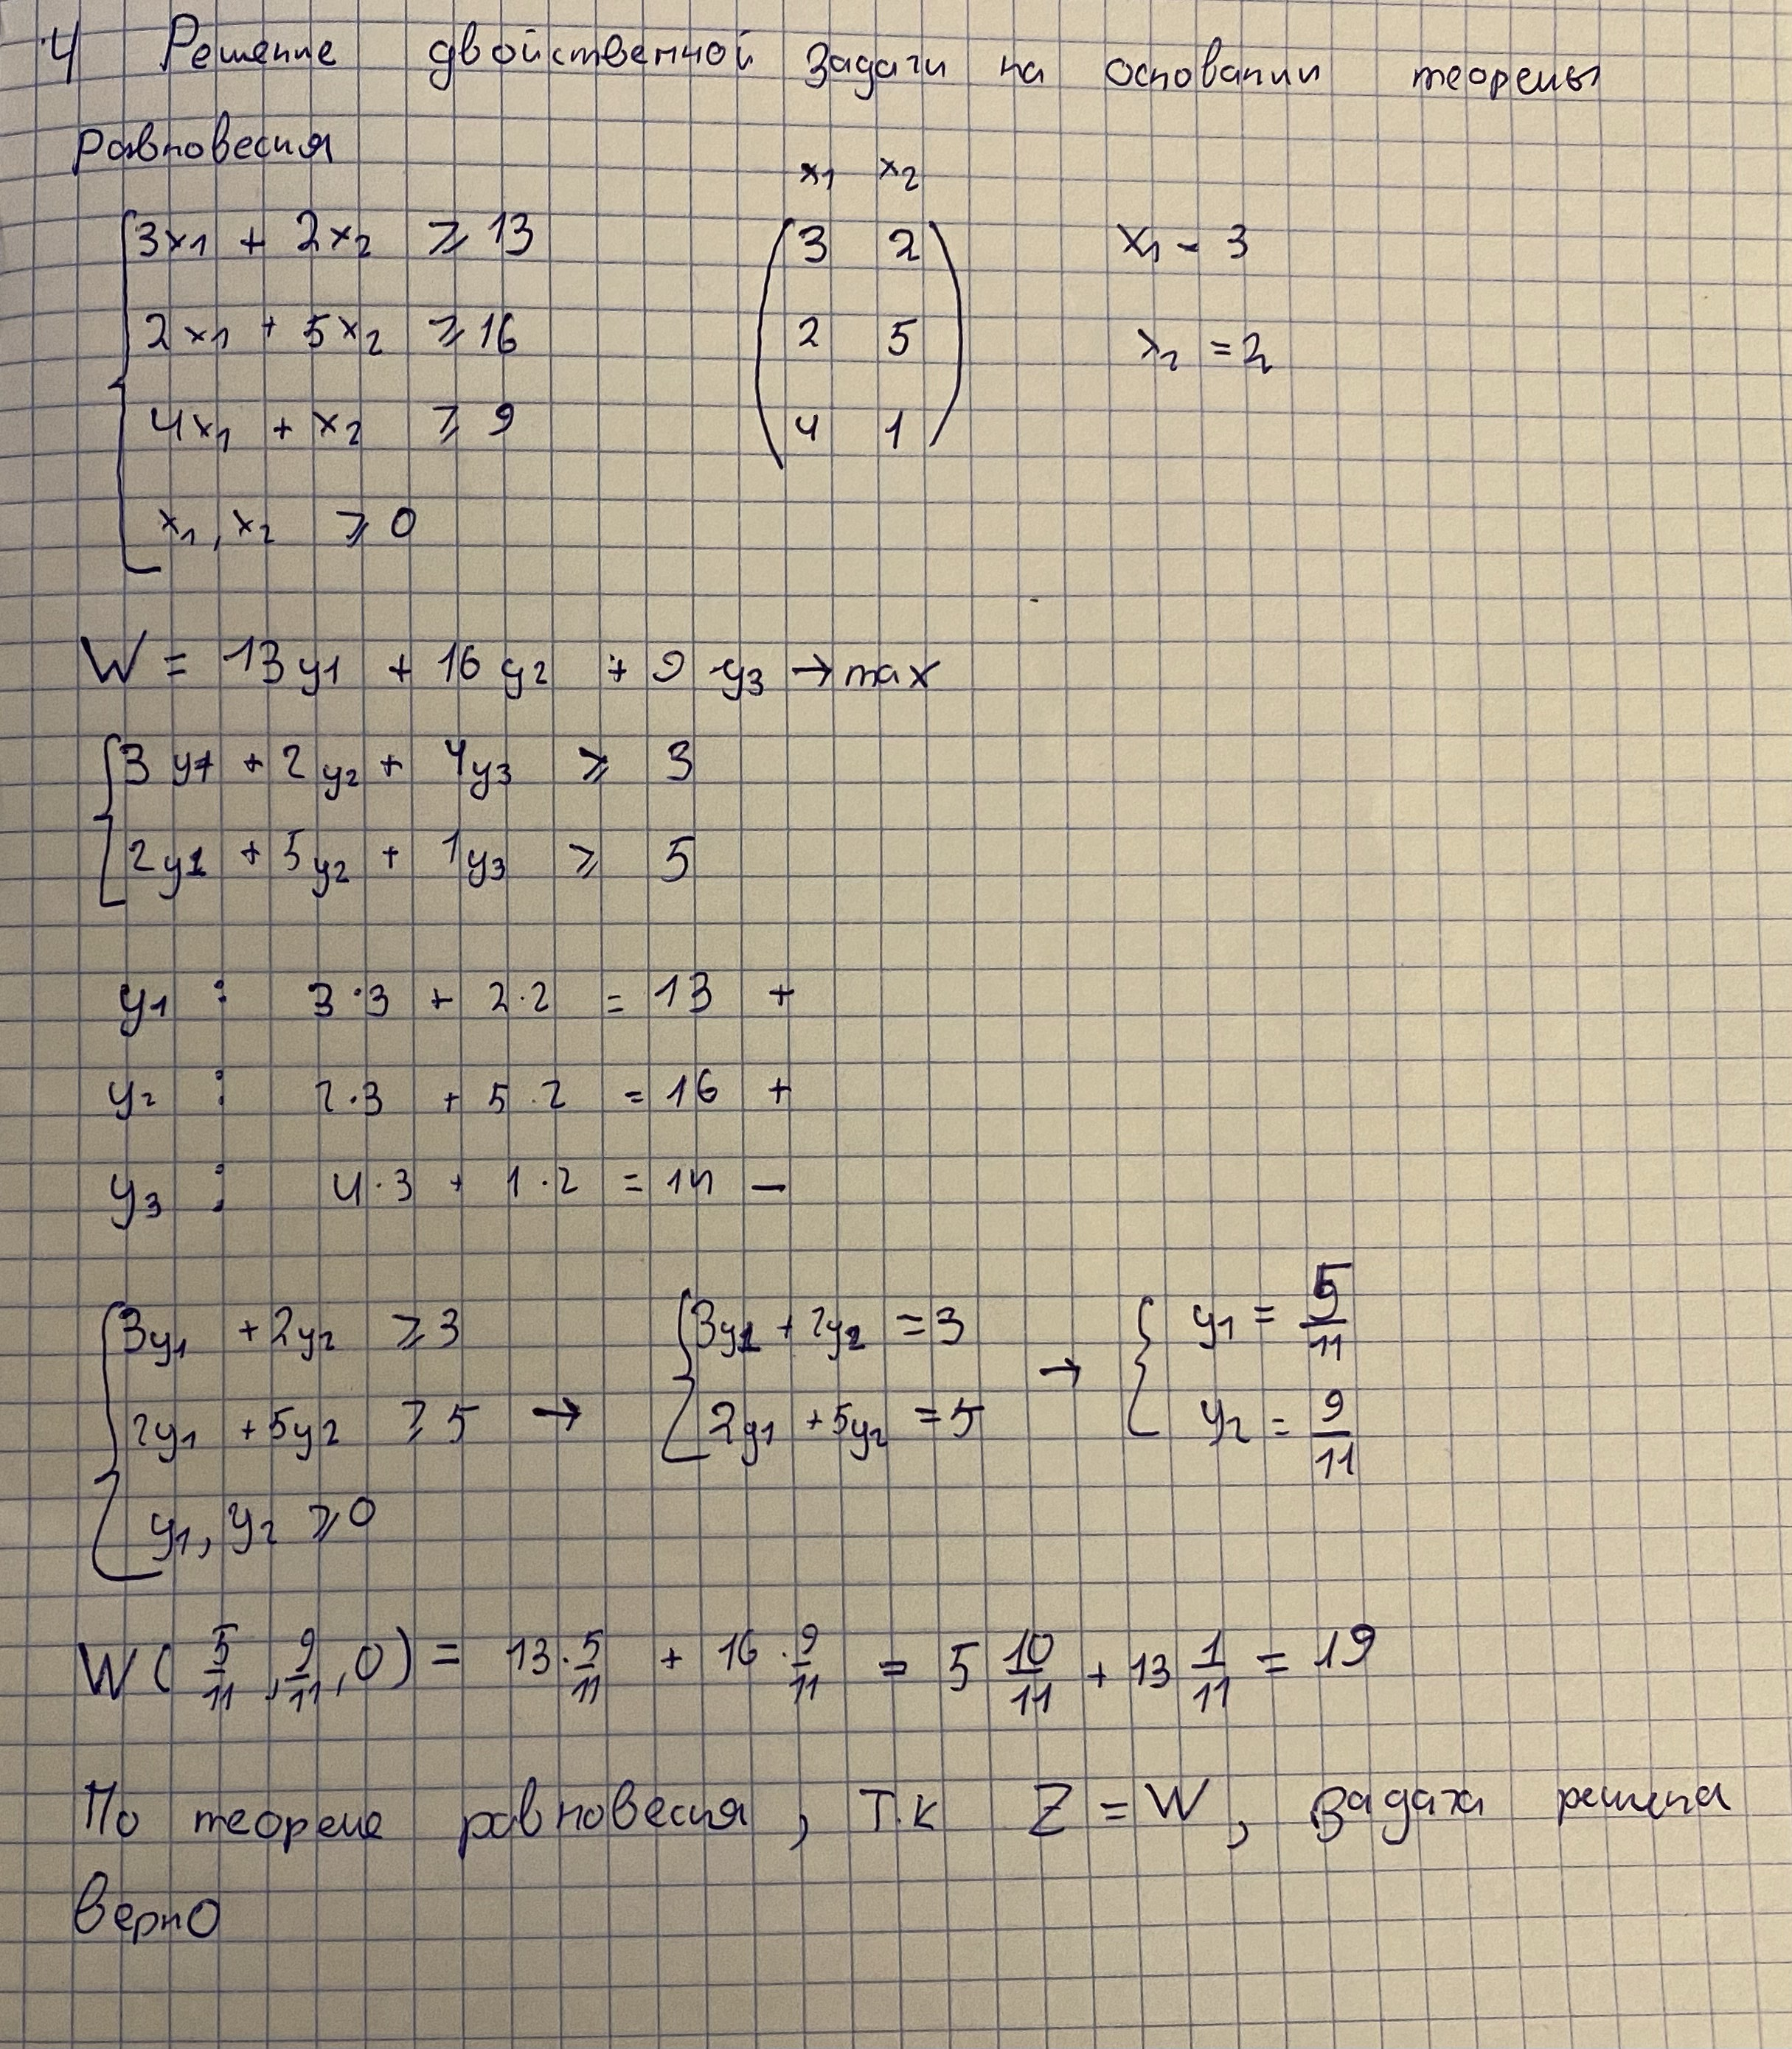 4 Решение двойственной задачи на основании теоремы
равновесия
x₁ x₂
3x₁ + 2x₂ ⩾ 13 (3 2 x₁ - 3
2x₁ + 5x₂ ⩾ 16 2 5 x₂ = 2
4x₁ + x₂ ⩾ 9 4 1)
x₁, x₂ ⩾ 0
W = 13y₁ + 16y₂ + 9y₃ → max
3y₁ + 2y₂ + 4y₃ ⩾ 3
2y₁ + 5y₂ + 1y₃ ⩾ 5
y₁ : 3·3 + 2·2 = 13 +
y₂ : 2·3 + 5·2 = 16 +
y₃ : 4·3 + 1·2 = 14 −
3y₁ + 2y₂ ⩾ 3 3y₁ + 2y₂ = 3 → y₁ = 5/11
2y₁ + 5y₂ ⩾ 5 → 2y₁ + 5y₂ = 5 y₂ = 9/11
y₁, y₂ ⩾ 0
W(5/11, 9/11, 0) = 13·5/11 + 16·9/11 = 5 10/11 + 13 1/11 = 19
По теореме равновесия, т.к Z = W, задача решена
верно